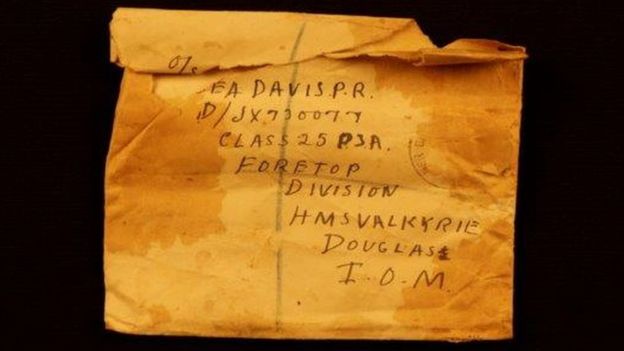 O/S
EA DAVIS.P.R.
D/JX730077
CLASS 25 PJA.
FORETOP
DIVISION
HMSVALKYRIE
DOUGLAS
I.O.M.